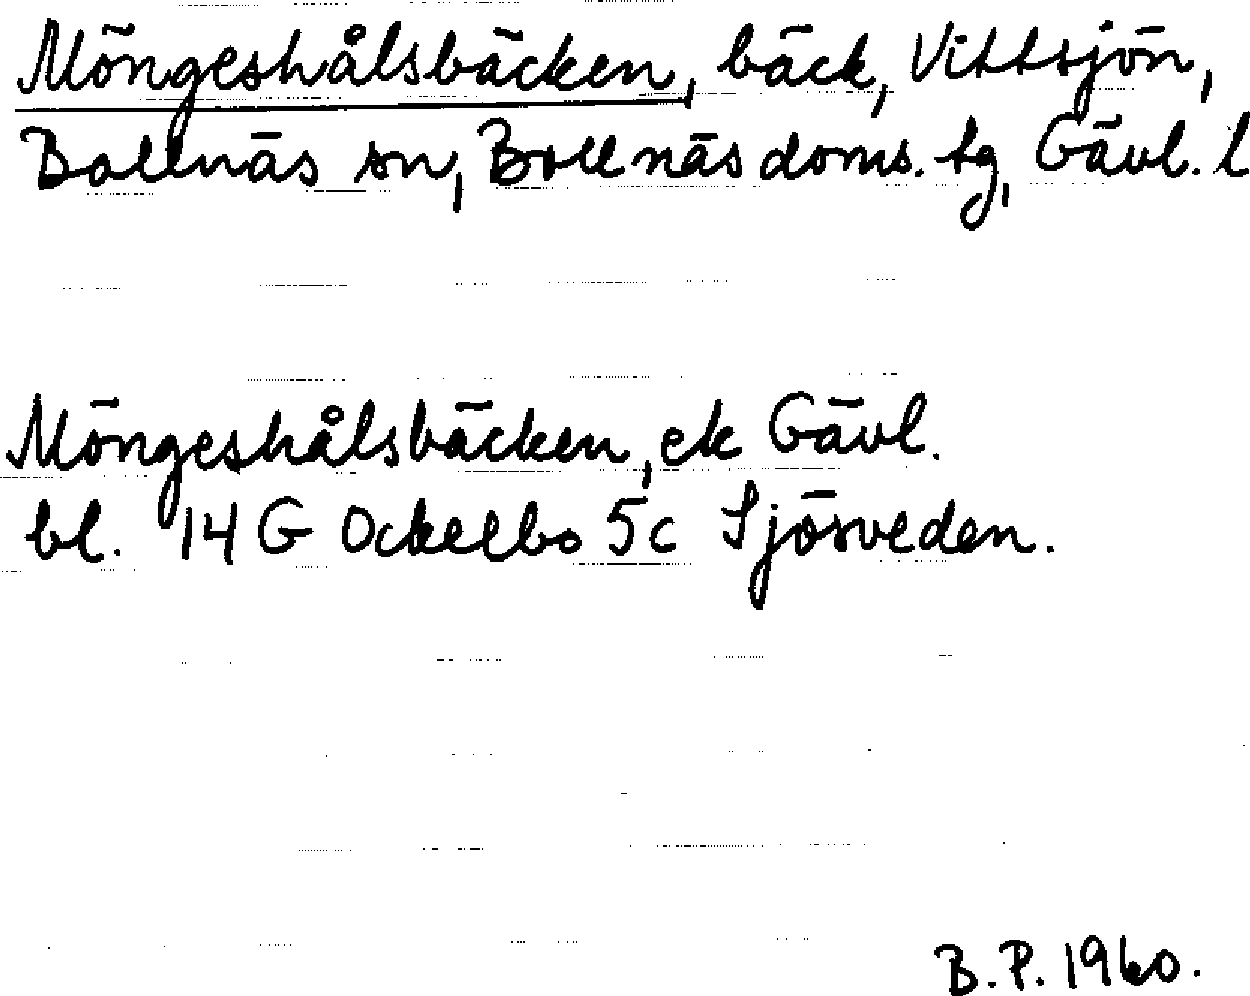 Möngeshålsbäcken, bäck, Vittsjön,
Bollnäs sn, Bollnäs doms. tg, Gävl. l
Möngeshålsbäcken, ek Gävl.
bl. 14 G Ockelbo 5c Sjösveden.
B.P. 1960.